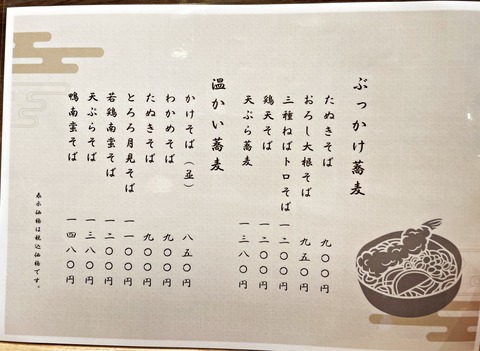 ぶっかけ蕎麦
たぬきそば 九〇〇円
おろし大根そば 九五〇円
三種ねばトロそば 一二〇〇円
鶏天そば 一二〇〇円
天ぷら蕎麦 一三八〇円
温かい蕎麦
かけそば（並） 八五〇円
わかめそば 九〇〇円
たぬきそば 九〇〇円
とろろ月見そば 一一〇〇円
若鶏南蛮そば 一二〇〇円
天ぷらそば 一三八〇円
鴨南蛮そば 一四八〇円
表示価格は税込価格です。